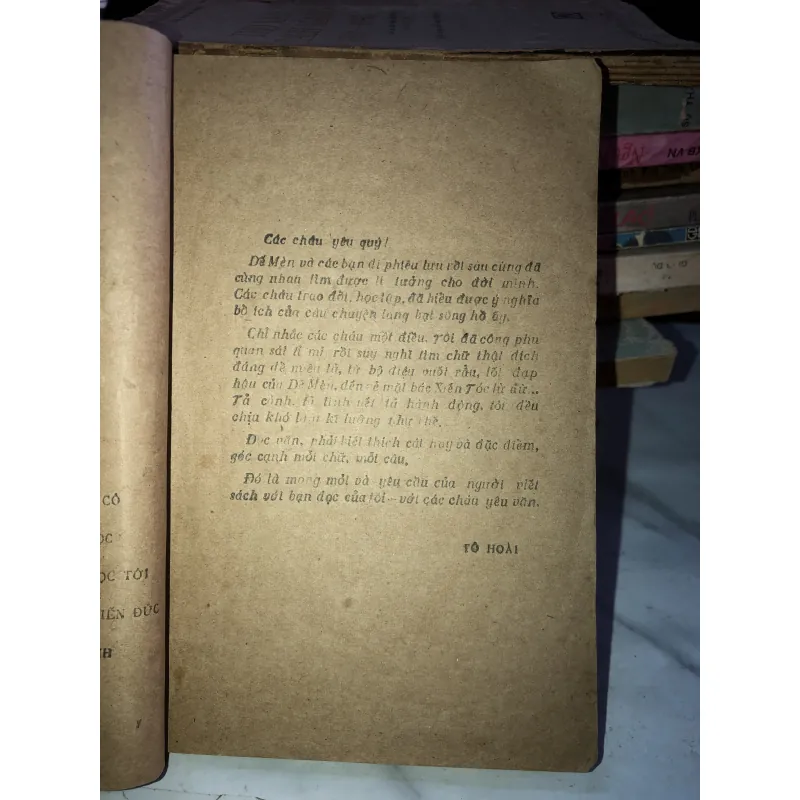 Các cháu yêu quý!
Dế Mèn và các bạn đi phiêu lưu rồi sau cùng đã
cùng nhau tìm được lí tưởng cho đời mình.
Các cháu trao đổi, học tập, đã hiểu được ý nghĩa
bổ ích của câu chuyện lang bạt sông hồ ấy.
Chỉ nhắc các cháu một điều. Tôi đã công phu
quan sát tỉ mỉ rồi suy nghĩ tìm chữ thật đích
đáng để miêu tả, từ bộ điệu vuốt râu, lối đạp
hậu của Dế Mèn, đến vẻ mặt bác Xiến Tóc lừ đừ...
Tả cảnh, tả tính nết, tả hành động, tôi đều
chịa khó làm kĩ lưỡng như thế.
Đọc văn, phải biết thích cái hay và đặc điểm,
góc cạnh mỗi chữ, mỗi câu.
Đó là mong mỏi và yêu cầu của người viết
sách với bạn đọc của tôi — với các cháu yêu văn.
TÔ HOÀI
CÔ
ỌC
ỌC TỚI
IẾN ĐỨC
NH